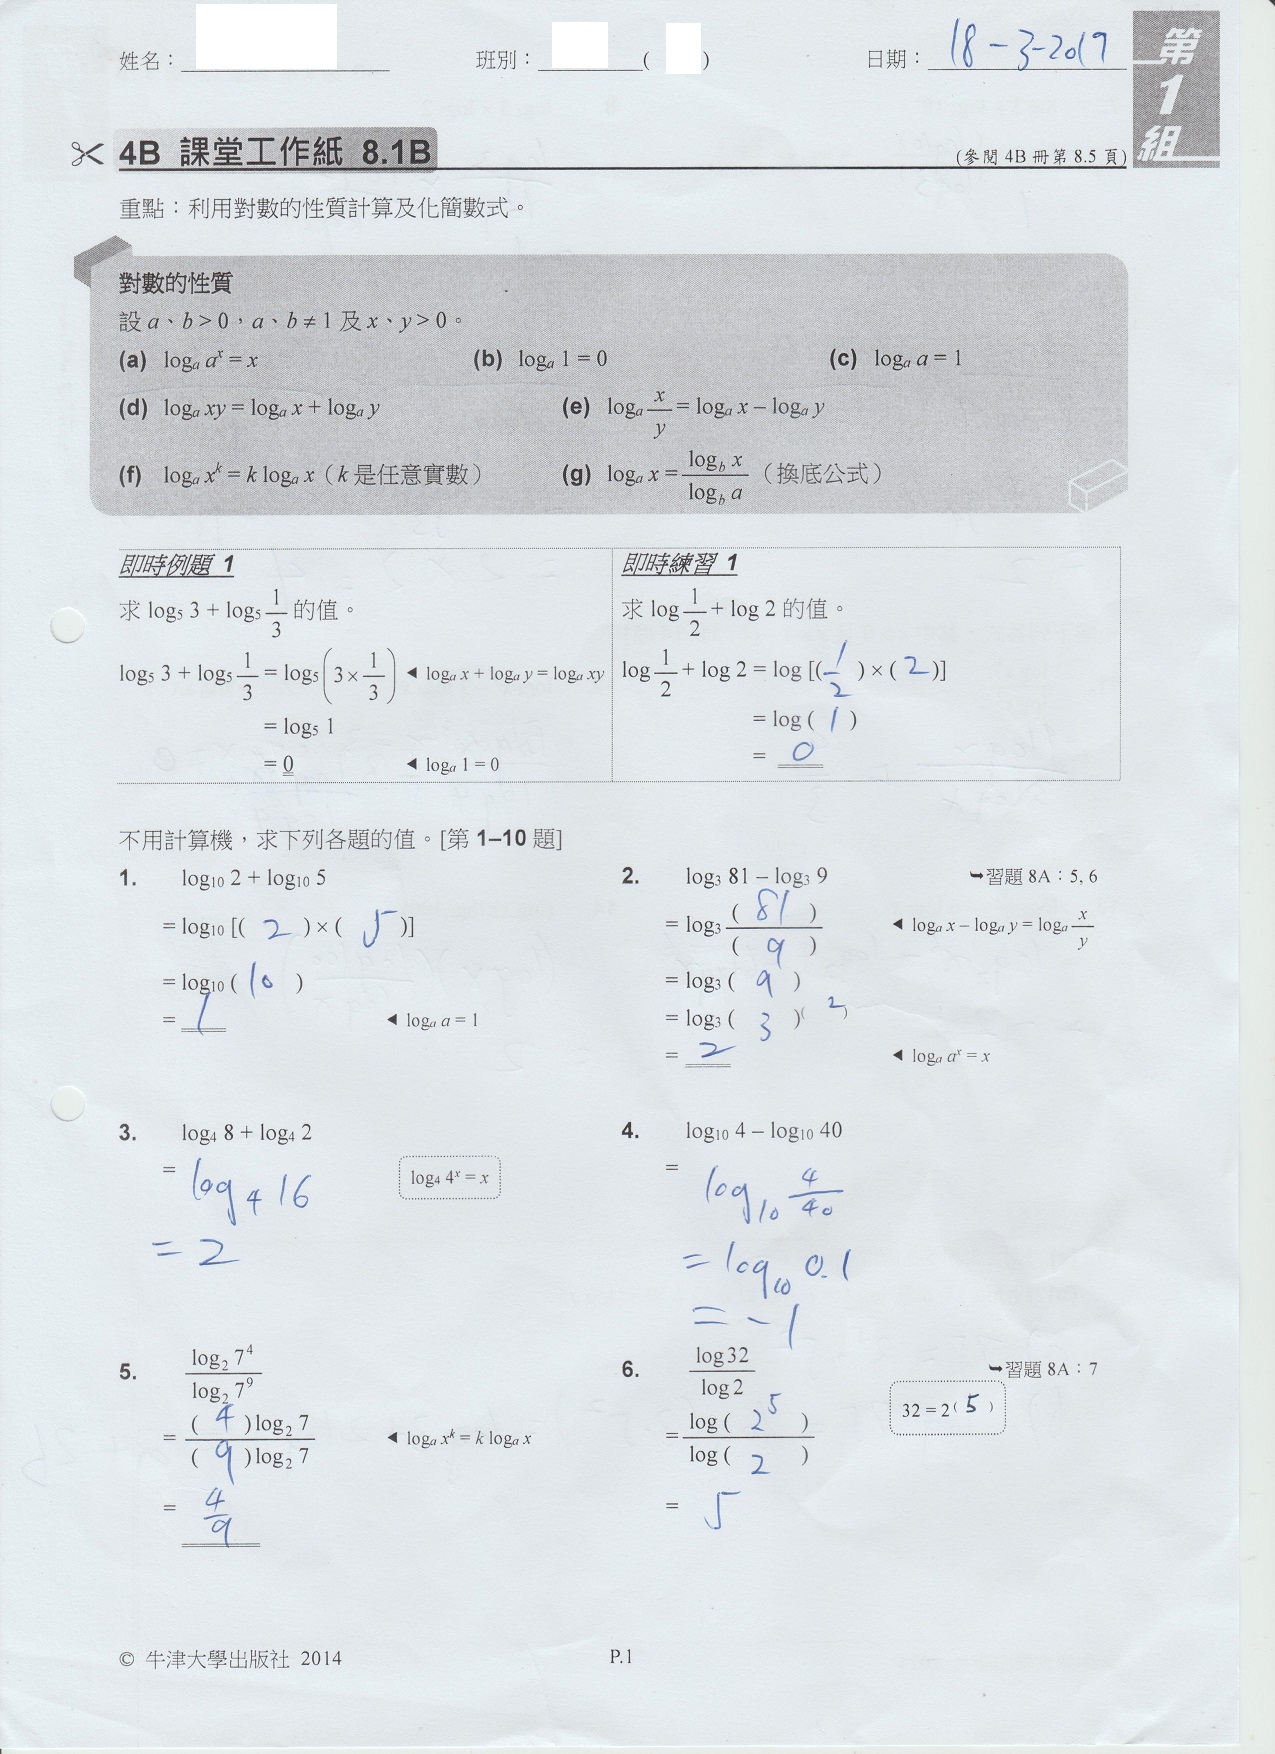 姓名： 班別： ( ) 日期： 18-3-2019
第1組
4B 課堂工作紙 8.1B (參閱 4B 冊第 8.5 頁)
重點：利用對數的性質計算及化簡數式。
對數的性質
設 a、b > 0，a、b ≠ 1 及 x、y > 0。
(a) logₐ aˣ = x (b) logₐ 1 = 0 (c) logₐ a = 1
(d) logₐ xy = logₐ x + logₐ y (e) logₐ x/y = logₐ x – logₐ y
(f) logₐ xᵏ = k logₐ x（k 是任意實數） (g) logₐ x = log_b x / log_b a（換底公式）
即時例題 1
求 log₅ 3 + log₅ 1/3 的值。
log₅ 3 + log₅ 1/3 = log₅ (3 × 1/3) ◄ logₐ x + logₐ y = logₐ xy
= log₅ 1
= 0 ◄ logₐ 1 = 0
即時練習 1
求 log 1/2 + log 2 的值。
log 1/2 + log 2 = log [( 1/2 ) × ( 2 )]
= log ( 1 )
= 0
不用計算機，求下列各題的值。[第 1–10 題]
1. log₁₀ 2 + log₁₀ 5
= log₁₀ [( 2 ) × ( 5 )]
= log₁₀ ( 10 )
= 1 ◄ logₐ a = 1
2. log₃ 81 – log₃ 9 ➥習題 8A：5, 6
= log₃ ( 81 )/( 9 ) ◄ logₐ x – logₐ y = logₐ x/y
= log₃ ( 9 )
= log₃ ( 3 )⁽ ² ⁾
= 2 ◄ logₐ aˣ = x
3. log₄ 8 + log₄ 2
= log₄ 16 log₄ 4ˣ = x
= 2
4. log₁₀ 4 – log₁₀ 40
= log₁₀ 4/40
= log₁₀ 0.1
= -1
5. log₂ 7⁴ / log₂ 7⁹
= ( 4 ) log₂ 7 / ( 9 ) log₂ 7 ◄ logₐ xᵏ = k logₐ x
= 4/9
6. log 32 / log 2 ➥習題 8A：7
= log ( 2⁵ ) / log ( 2 ) 32 = 2⁽ ⁵ ⁾
= 5
© 牛津大學出版社 2014 P.1